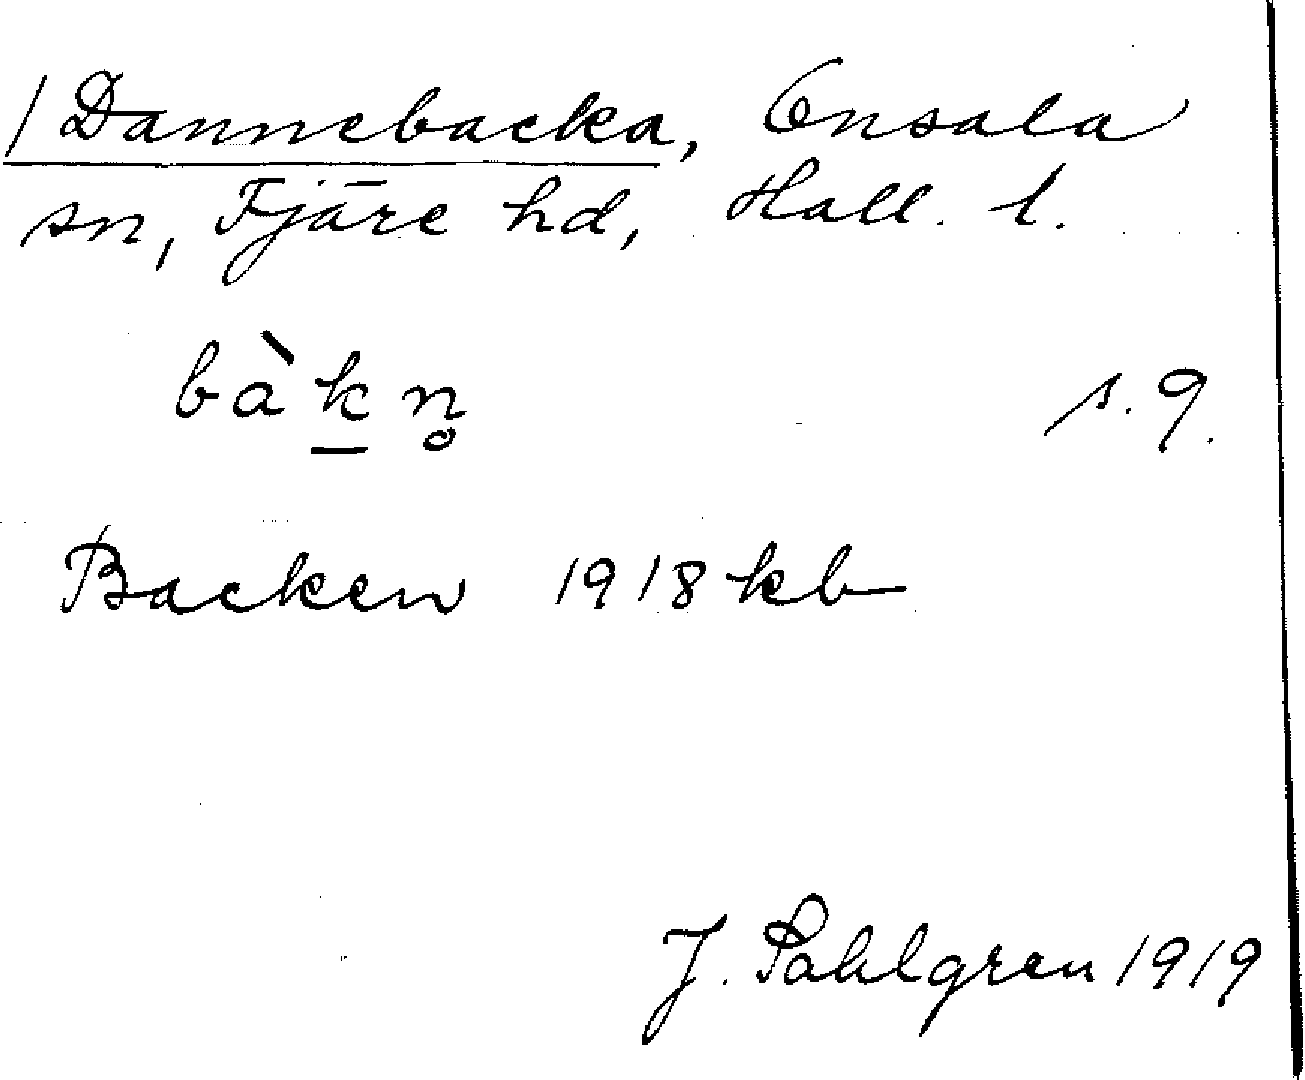 / Dannebacka, Onsala
sn, Fjäre hd, Hall. l.
bàk̲n̥ s. 9.
Backen 1918 kb
J. Sahlgren 1919